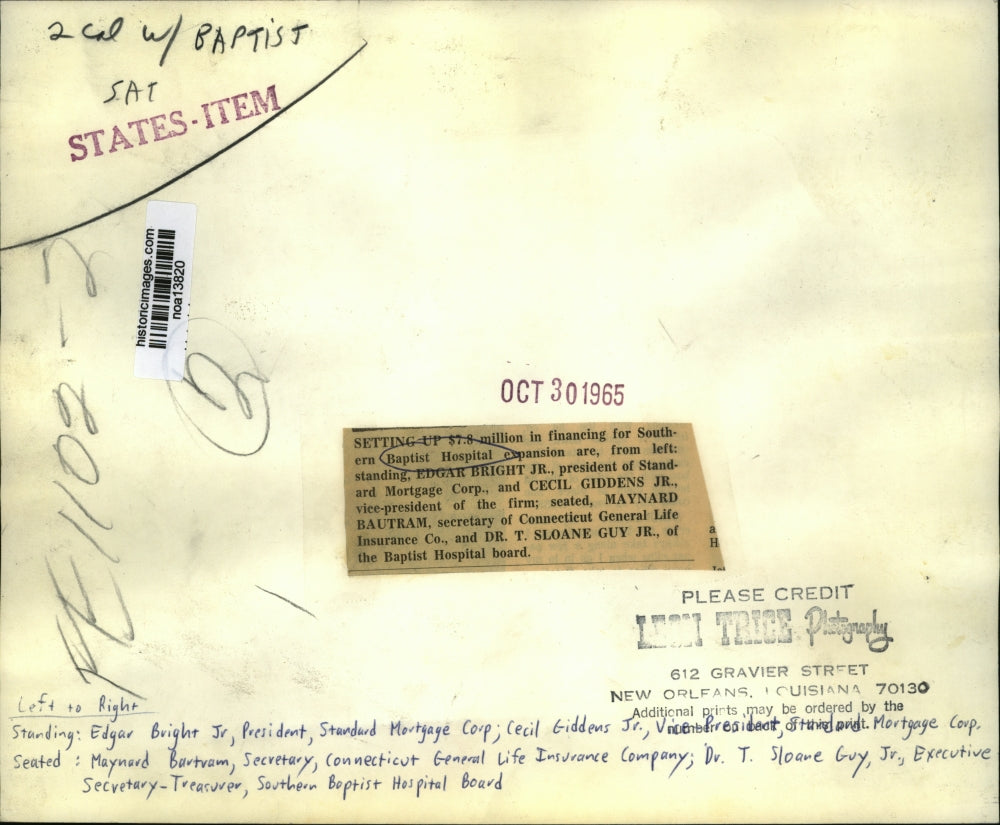 2 col w/ BAPTIST
SAT
STATES-ITEM
historicimages.com
noa13820
2
OCT 30 1965
SETTING UP $7.8 million in financing for South-
ern Baptist Hospital expansion are, from left:
standing, EDGAR BRIGHT JR., president of Stand-
ard Mortgage Corp., and CECIL GIDDENS JR.,
vice-president of the firm; seated, MAYNARD
BAUTRAM, secretary of Connecticut General Life
Insurance Co., and DR. T. SLOANE GUY JR., of
the Baptist Hospital board.
PLEASE CREDIT
LEON TRICE Photography
612 GRAVIER STREET
NEW ORLEANS, LOUISIANA 70130
Additional prints may be ordered by the
number on back of this print.
Left to Right
Standing: Edgar Bright Jr, President, Standard Mortgage Corp; Cecil Giddens Jr., Vice President, Standard Mortgage Corp.
Seated: Maynard Bartram, Secretary, Connecticut General Life Insurance Company; Dr. T. Sloane Guy, Jr., Executive
Secretary-Treasurer, Southern Baptist Hospital Board